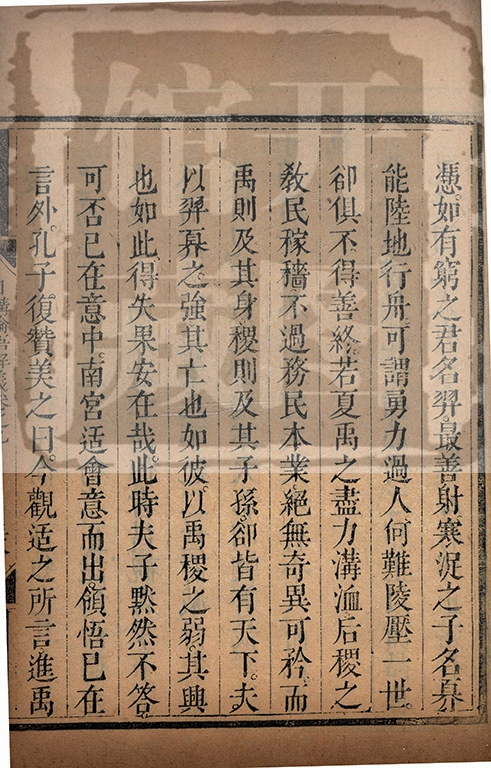 憑如有窮之君名羿最善射寒浞之子名奡
能陸地行舟可謂勇力過人何難陵壓一世
卻俱不得善終若夏禹之盡力溝洫后稷之
敎民稼穡不過務民本業絕無奇異可矜而
禹則及其身稷則及其子孫卻皆有天下夫
以羿奡之強其亡也如彼以禹稷之弱其興
也如此得失果安在哉此時夫子黙然不答
可否已在意中南宮适會意而出領悟已在
言外孔子復贊美之曰今觀适之所言進禹